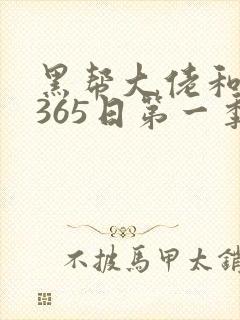 黑帮大佬和
365日第一季
不披馬甲太銷